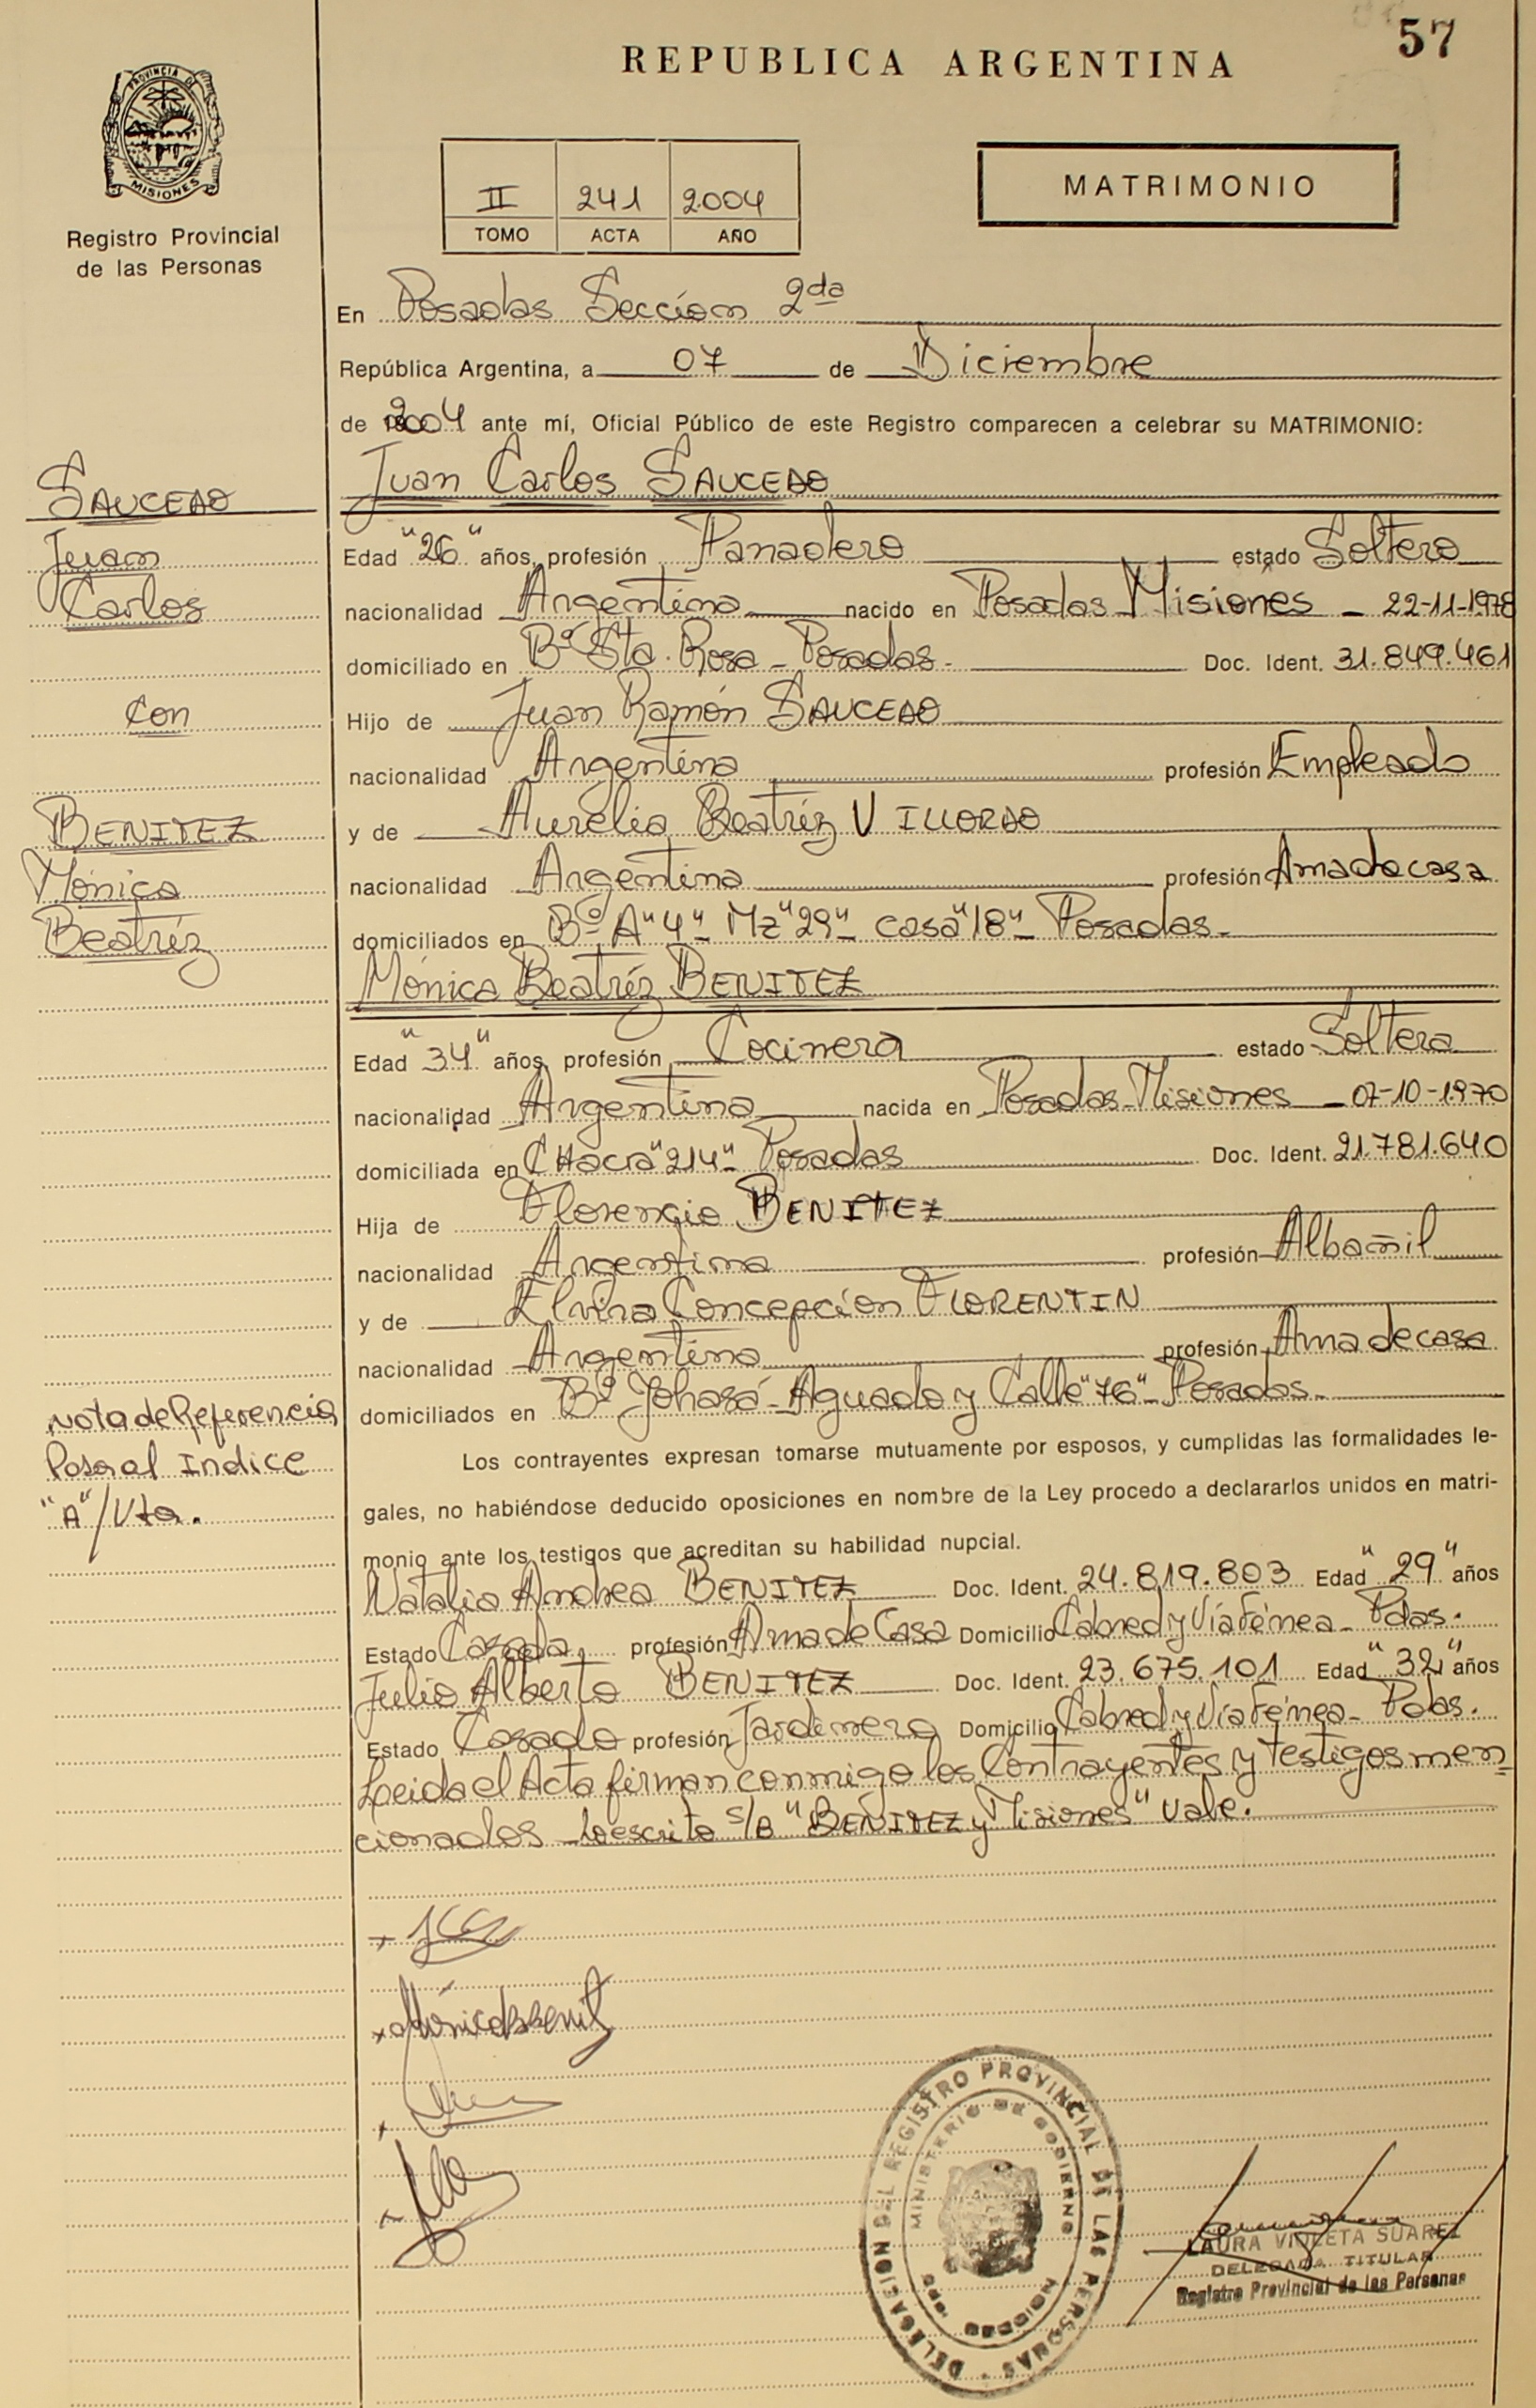 57
REPUBLICA ARGENTINA
PROVINCIA DE
MISIONES
Registro Provincial
de las Personas
II 241 2004
TOMO ACTA AÑO
MATRIMONIO
En Posadas Sección 2da
República Argentina, a 07 de Diciembre
de 2004 ante mí, Oficial Público de este Registro comparecen a celebrar su MATRIMONIO:
SAUCEDO
Juan
Carlos
con
BENITEZ
Mónica
Beatríz
Nota de Referencia
Pasa al Indice
"A"/Vta.
Juan Carlos SAUCEDO
Edad "26" años, profesión Panadero estado Soltero
nacionalidad Argentina nacido en Posadas Misiones - 22-11-1978
domiciliado en Bº Sta. Rosa - Posadas - Doc. Ident. 31.849.461
Hijo de Juan Ramón SAUCEDO
nacionalidad Argentina profesión Empleado
y de Aurelia Beatríz VILLORDO
nacionalidad Argentina profesión Ama de casa
domiciliados en Bº A"4" - Mz"29" - casa"18" - Posadas -
Mónica Beatríz BENITEZ
Edad "34" años, profesión Cocinera estado Soltera
nacionalidad Argentina nacida en Posadas - Misiones - 07-10-1970
domiciliada en CHacra"214" - Posadas Doc. Ident. 21.781.640
Hija de Florencio BENITEZ
nacionalidad Argentina profesión Albañil
y de Elvira Concepción FLORENTIN
nacionalidad Argentina profesión Ama de casa
domiciliados en Bº Yohasá - Aguado y Calle"76" - Posadas -
Los contrayentes expresan tomarse mutuamente por esposos, y cumplidas las formalidades le-
gales, no habiéndose deducido oposiciones en nombre de la Ley procedo a declararlos unidos en matri-
monio ante los testigos que acreditan su habilidad nupcial.
Natalia Andrea BENITEZ Doc. Ident. 24.819.803 Edad "29" años
Estado Casada profesión Ama de Casa Domicilio Cabred y Vía Férrea - Pdas.
Julio Alberto BENITEZ Doc. Ident. 23.675.101 Edad "32" años
Estado Casado profesión Jardinero Domicilio Cabred y Vía Férrea - Pdas.
Leida el Acta firman conmigo los Contrayentes y testigos men
cionados Lo escrito s/B "BENITEZ y Misiones" vale.
DELEGACION DEL REGISTRO PROVINCIAL DE LAS PERSONAS
MINISTERIO DE GOBIERNO
LAURA VIOLETA SUAREZ
DELEGADA TITULAR
Registro Provincial de las Personas